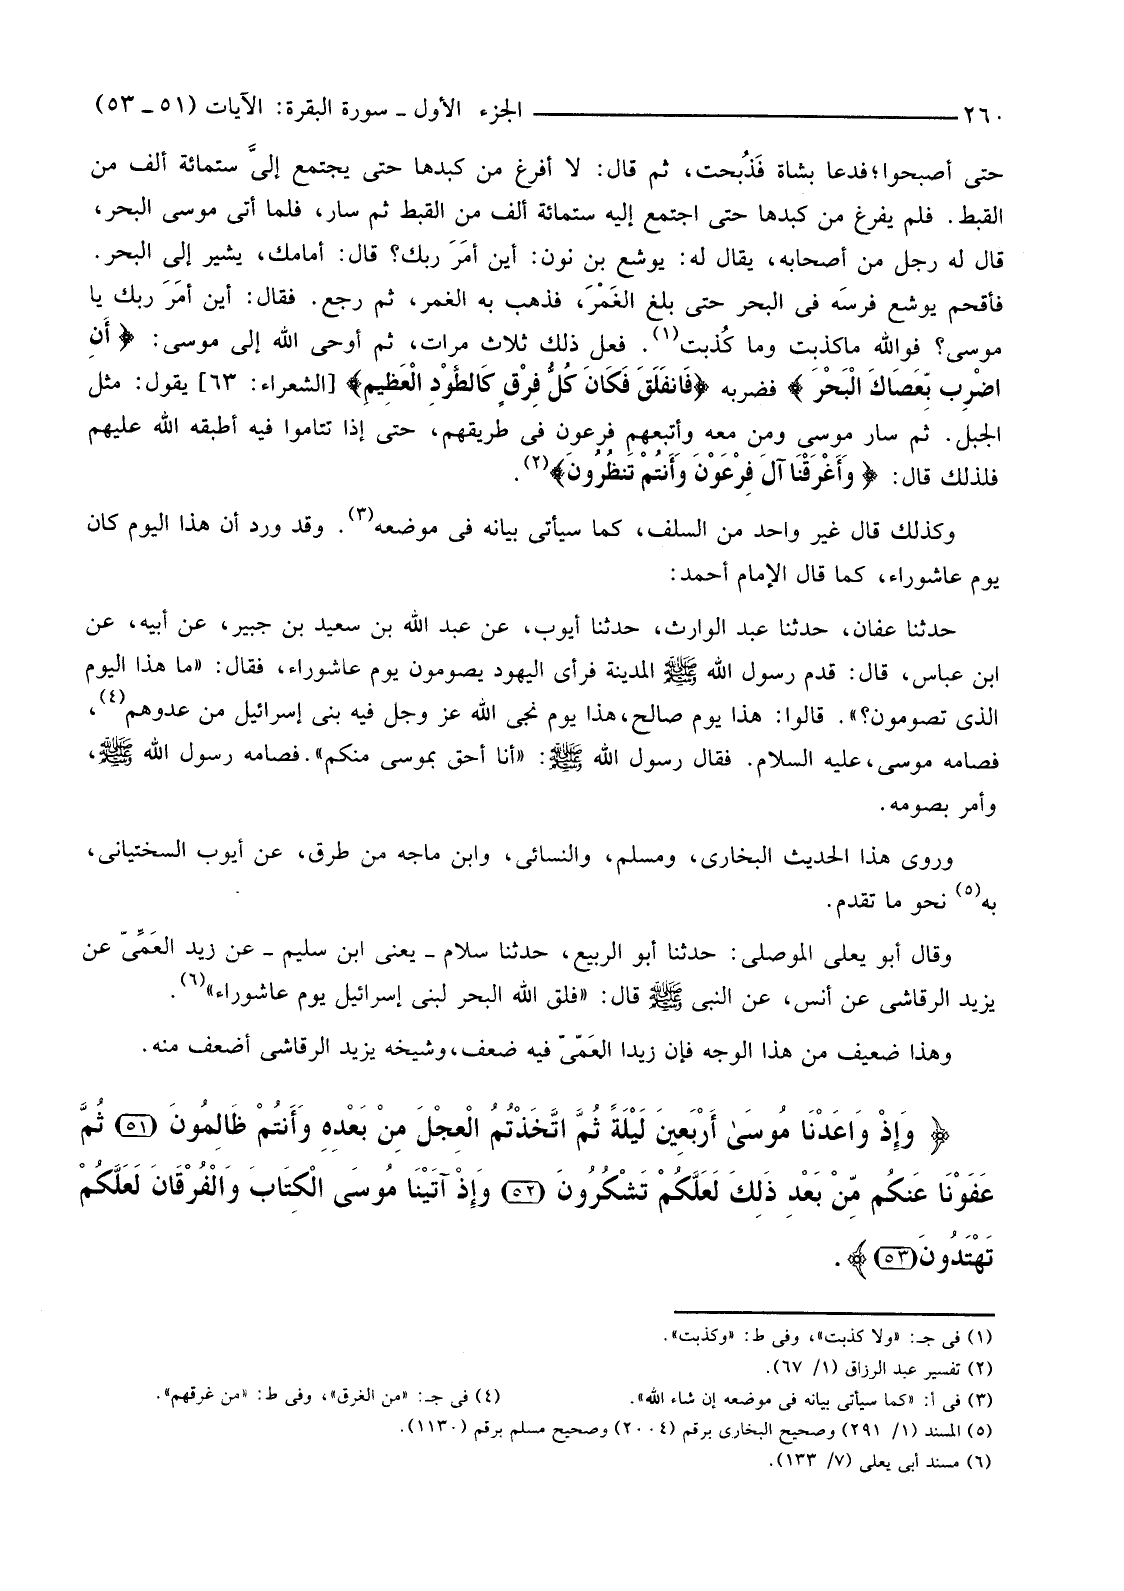 ٢٦٠ ـــــــــــــــــ الجزء الأول ـ سورة البقرة: الآيات (٥١ ـ ٥٣)
حتى أصبحوا؛فدعا بشاة فَذُبحت، ثم قال: لا أفرغ من كبدها حتى يجتمع إلىَّ ستمائة ألف من
القبط. فلم يفرغ من كبدها حتى اجتمع إليه ستمائة ألف من القبط ثم سار، فلما أتى موسى البحر،
قال له رجل من أصحابه، يقال له: يوشع بن نون: أين أمَرَ ربك؟ قال: أمامك، يشير إلى البحر.
فأقحم يوشع فرسَه فى البحر حتى بلغ الغَمْرَ، فذهب به الغمر، ثم رجع. فقال: أين أمَرَ ربك يا
موسى؟ فوالله ماكذبت وما كُذبت(١). فعل ذلك ثلاث مرات، ثم أوحى الله إلى موسى: ﴿ أَنِ
اضْرِب بِّعَصَاكَ الْبَحْرَ ﴾ فضربه ﴿فَانفَلَقَ فَكَانَ كُلُّ فِرْقٍ كَالطَّوْدِ الْعَظِيمِ﴾ [الشعراء: ٦٣] يقول: مثل
الجبل. ثم سار موسى ومن معه وأتبعهم فرعون فى طريقهم، حتى إذا تتاموا فيه أطبقه الله عليهم
فلذلك قال: ﴿ وَأَغْرَقْنَا آلَ فِرْعَوْنَ وَأَنتُمْ تَنظُرُونَ﴾(٢).
وكذلك قال غير واحد من السلف، كما سيأتى بيانه فى موضعه(٣). وقد ورد أن هذا اليوم كان
يوم عاشوراء، كما قال الإمام أحمد:
حدثنا عفان، حدثنا عبد الوارث، حدثنا أيوب، عن عبد الله بن سعيد بن جبير، عن أبيه، عن
ابن عباس، قال: قدم رسول الله ﷺ المدينة فرأى اليهود يصومون يوم عاشوراء، فقال: «ما هذا اليوم
الذى تصومون؟». قالوا: هذا يوم صالح،هذا يوم نجى الله عز وجل فيه بنى إسرائيل من عدوهم(٤)،
فصامه موسى،عليه السلام. فقال رسول الله ﷺ: «أنا أحق بموسى منكم».فصامه رسول الله ﷺ،
وأمر بصومه.
وروى هذا الحديث البخارى، ومسلم، والنسائى، وابن ماجه من طرق، عن أيوب السختيانى،
به(٥) نحو ما تقدم.
وقال أبو يعلى الموصلى: حدثنا أبو الربيع، حدثنا سلام ـ يعنى ابن سليم ـ عن زيد العَمِّىّ عن
يزيد الرقاشى عن أنس، عن النبى ﷺ قال: «فلق الله البحر لبنى إسرائيل يوم عاشوراء»(٦).
وهذا ضعيف من هذا الوجه فإن زيدا العَمّىّ فيه ضعف،وشيخه يزيد الرقاشى أضعف منه.
﴿ وَإِذْ وَاعَدْنَا مُوسَىٰ أَرْبَعِينَ لَيْلَةً ثُمَّ اتَّخَذْتُمُ الْعِجْلَ مِنْ بَعْدِهِ وَأَنتُمْ ظَالِمُونَ (٥١) ثُمَّ
عَفَوْنَا عَنكُم مِّنْ بَعْدِ ذَلِكَ لَعَلَّكُمْ تَشْكُرُونَ (٥٢) وَإِذْ آتَيْنَا مُوسَى الْكِتَابَ وَالْفُرْقَانَ لَعَلَّكُمْ
تَهْتَدُونَ(٥٣)﴾.
(١) فى جـ: «ولا كذبت»، وفى ط: «وكذبت».
(٢) تفسير عبد الرزاق (١/ ٦٧).
(٣) فى أ: «كما سيأتى بيانه فى موضعه إن شاء الله». (٤) فى جـ: «من الغرق»، وفى ط: «من غرقهم».
(٥) المسند (١/ ٢٩١) وصحيح البخارى برقم (٢٠٠٤) وصحيح مسلم برقم (١١٣٠).
(٦) مسند أبى يعلى (٧/ ١٣٣).